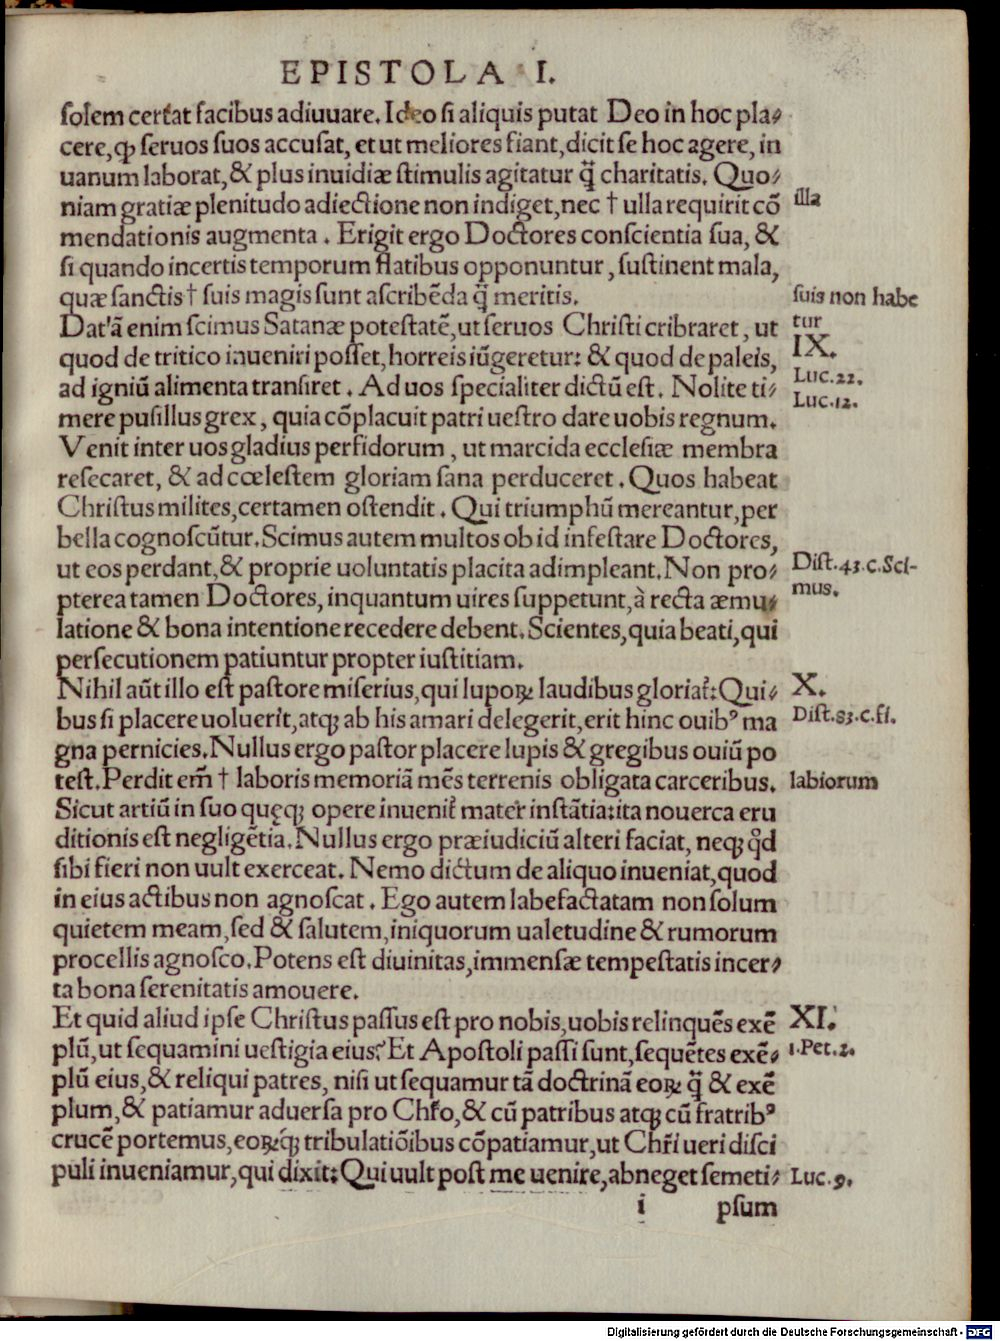 EPISTOLA I.
ſolem certat facibus adiuuare. Ideo ſi aliquis putat Deo in hoc pla⸗
cere, ꝙ ſeruos ſuos accuſat, et ut meliores fiant, dicit ſe hoc agere, in
uanum laborat, & plus inuidiæ ſtimulis agitatur q̈ charitatis. Quo⸗
niam gratiæ plenitudo adiectione non indiget, nec † ulla requirit cō
illa
mendationis augmenta. Erigit ergo Doctores conſcientia ſua, &
ſi quando incertis temporum flatibus opponuntur, ſuſtinent mala,
quæ ſanctis † ſuis magis ſunt aſcribēda q̈ meritis.
ſuis non habe
tur
Dat'ā enim ſcimus Satanæ poteſtatē, ut ſeruos Chriſti cribraret, ut
IX.
quod de tritico inueniri poſſet, horreis iūgeretur: & quod de paleis,
Luc.22.
ad igniū alimenta tranſiret. Ad uos ſpecialiter dictū eſt. Nolite ti⸗
Luc.12.
mere puſillus grex, quia cōplacuit patri ueſtro dare uobis regnum.
Venit inter uos gladius perfidorum, ut marcida eccleſiæ membra
reſecaret, & ad cœleſtem gloriam ſana perduceret. Quos habeat
Chriſtus milites, certamen oſtendit. Qui triumphū mereantur, per
bella cognoſcūtur. Scimus autem multos ob id infeſtare Doctores,
ut eos perdant, & proprie uoluntatis placita adimpleant. Non pro⸗
Diſt.43.c.Sci-
mus.
pterea tamen Doctores, inquantum uires ſuppetunt, à recta æmu⸗
latione & bona intentione recedere debent. Scientes, quia beati, qui
perſecutionem patiuntur propter iuſtitiam.
Nihil aūt illo eſt paſtore miſerius, qui lupoꝝ laudibus gloriat̃: Qui⸗
X.
bus ſi placere uoluerit, atqꝫ ab his amari delegerit, erit hinc ouibꝰ ma
Diſt.83.c.fi.
gna pernicies. Nullus ergo paſtor placere lupis & gregibus ouiū po
teſt. Perdit em̄ † laboris memoriā mēs terrenis obligata carceribus.
labiorum
Sicut artiū in ſuo quęqꝫ opere inuenit̃ mater inſtātia: ita nouerca eru
ditionis eſt negligētia. Nullus ergo præiudiciū alteri faciat, neqꝫ qd̄
ſibi fieri non uult exerceat. Nemo dictum de aliquo inueniat, quod
in eius actibus non agnoſcat. Ego autem labefactatam non ſolum
quietem meam, ſed & ſalutem, iniquorum ualetudine & rumorum
procellis agnoſco. Potens eſt diuinitas, immenſæ tempeſtatis incer⸗
ta bona ſerenitatis amouere.
Et quid aliud ipſe Chriſtus paſſus eſt pro nobis, uobis relinquēs exē
XI.
plū, ut ſequamini ueſtigia eius? Et Apoſtoli paſſi ſunt, ſequētes exē⸗
1.Pet.2.
plū eius, & reliqui patres, niſi ut ſequamur tā doctrinā eoꝝ q̈ & exē
plum, & patiamur aduerſa pro Chr̄o, & cū patribus atqꝫ cū fratribꝰ
crucē portemus, eoꝝqꝫ tribulatiōibus cōpatiamur, ut Chr̄i ueri diſci
puli inueniamur, qui dixit: Qui uult poſt me uenire, abneget ſemeti⸗
Luc.9.
i
pſum
Digitalisierung gefördert durch die Deutsche Forschungsgemeinschaft - DFG